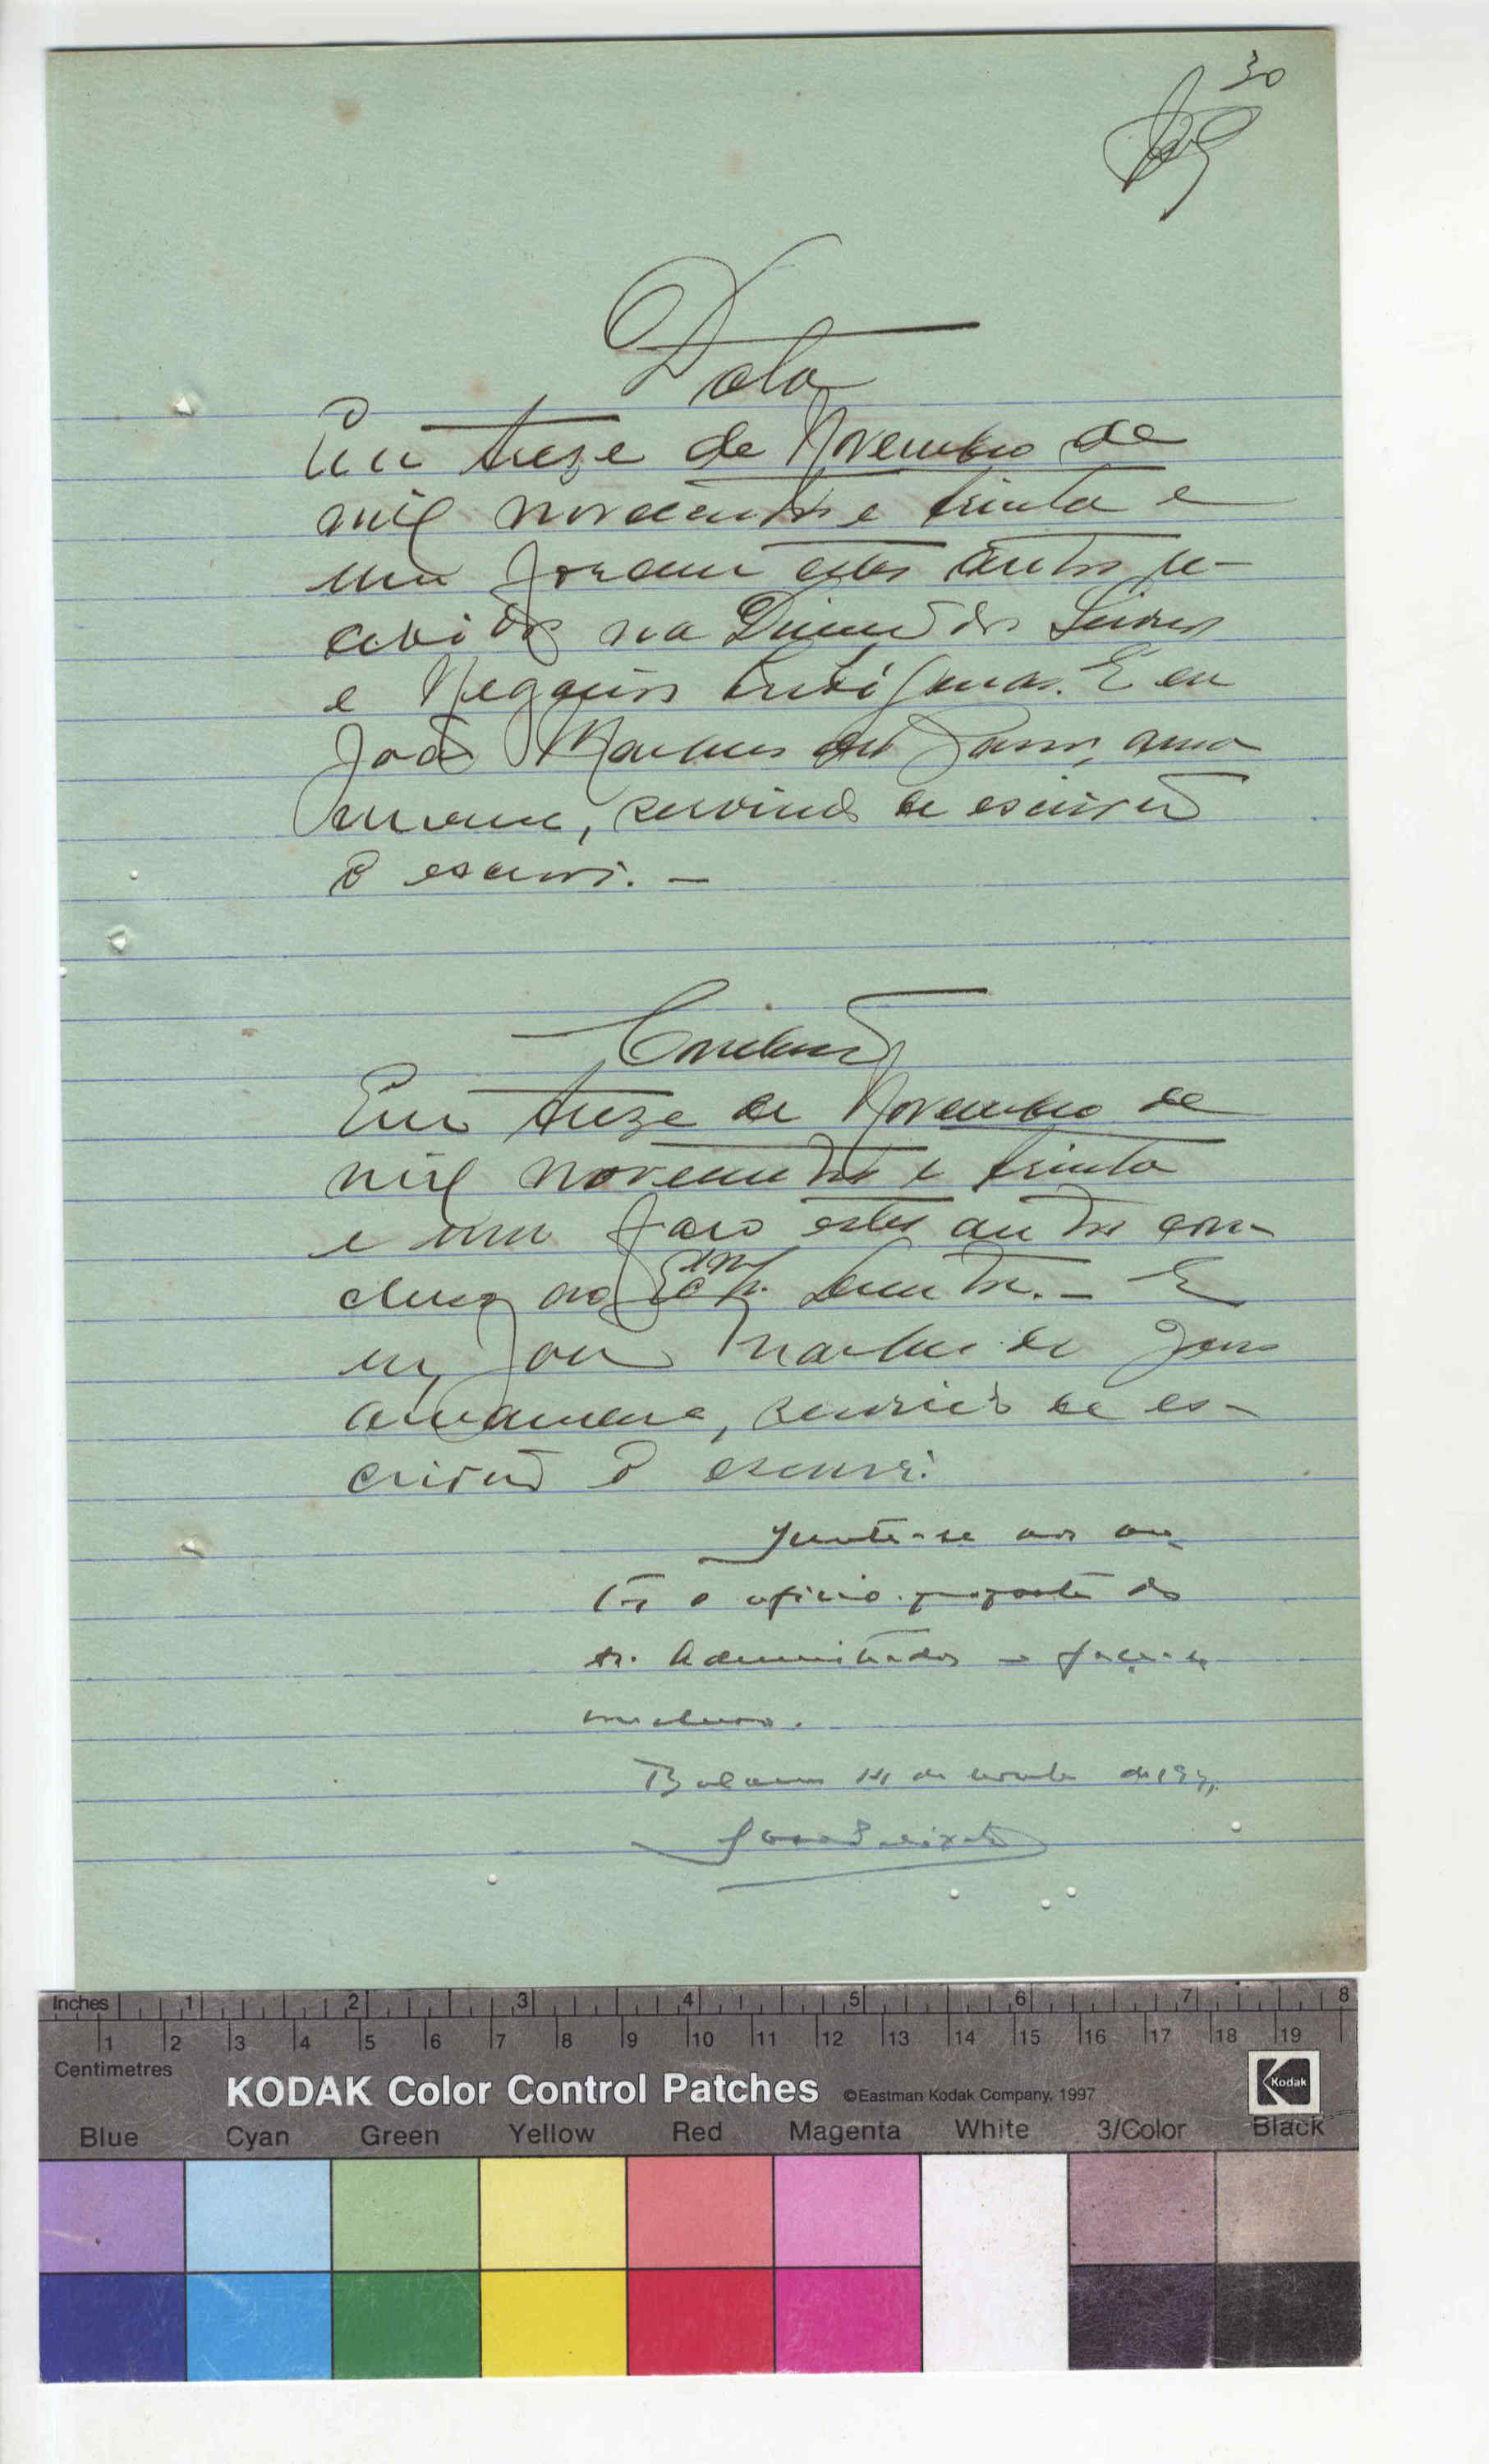 30
Data
Em treze de Novembro de
mil novecentos e trinta e
um foram estes autos re-
cebidos na
e Negocios Indigenas. E eu
João Marques de
, servindo de escrivão
o escrevi. —
Conclusão
Em treze de Novembro de
mil novecentos e trinta
e um faço estes autos con-
clusos ao Exmo. Sr. . — E
eu, João Marques de
amanuense, servindo de es-
crivão o escrevi.
Junte-se aos au-
tos o oficio-proposta do
Sr. Administrador e faça-se
concluso.
Bolama 14 de de 1931
Inches 1 2 3 4 5 6 7 8
1 2 3 4 5 6 7 8 9 10 11 12 13 14 15 16 17 18 19
Centimetres
KODAK Color Control Patches ©Eastman Kodak Company, 1997 Kodak
Blue Cyan Green Yellow Red Magenta White 3/Color Black